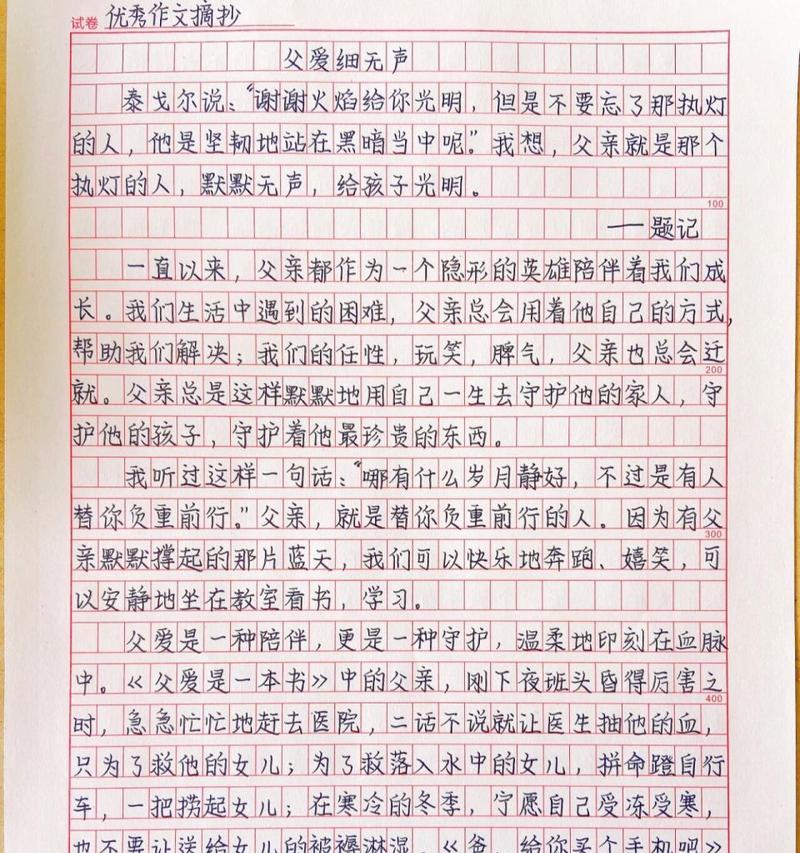 试卷 优秀作文摘抄
父爱细无声
泰戈尔说：“谢谢火焰给你光明，但是不要忘了那执灯
的人，他是坚韧地站在黑暗当中呢。”我想，父亲就是那个
执灯的人，默默无声，给孩子光明。
100
——题记
一直以来，父亲都作为一个隐形的英雄陪伴着我们成
长。我们生活中遇到的困难，父亲总会用着他自己的方式，
帮助我们解决；我们的任性，玩笑，脾气，父亲也总会迁
200
就。父亲总是这样默默地用自己一生去守护他的家人，守
护他的孩子，守护着他最珍贵的东西。
我听过这样一句话：“哪有什么岁月静好，不过是有人
替你负重前行。”父亲，就是替你负重前行的人。因为有父
300
亲默默撑起的那片蓝天，我们可以快乐地奔跑、嬉笑，可
以安静地坐在教室看书，学习。
父爱是一种陪伴，更是一种守护，温柔地印刻在血脉
中。《父爱是一本书》中的父亲，刚下夜班头昏得厉害之
400
时，急急忙忙地赶去医院，二话不说就让医生抽他的血，
只为了救他的女儿；为了救落入水中的女儿，拼命蹬自行
车，一把捞起女儿；在寒冷的冬季，宁愿自己受冻受寒，
也不要让送给女儿的被褥淋湿。《爸，给你买个手机吧》